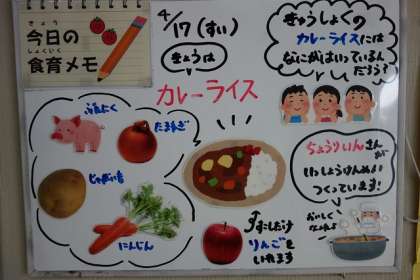 きょう
今日の
しょくいく
食育メモ
4/17(すい)
きょうは
カレーライス
きゅうしょくの
カレーライスには
なにがはいっているん
だろう?
ぶたにく
たまねぎ
じゃがいも
にんじん
すこしだけ
りんごを
いれます
ちょうりいんさん
が
いっしょうけんめい
つくっています!
おいしく
なぁれ♪